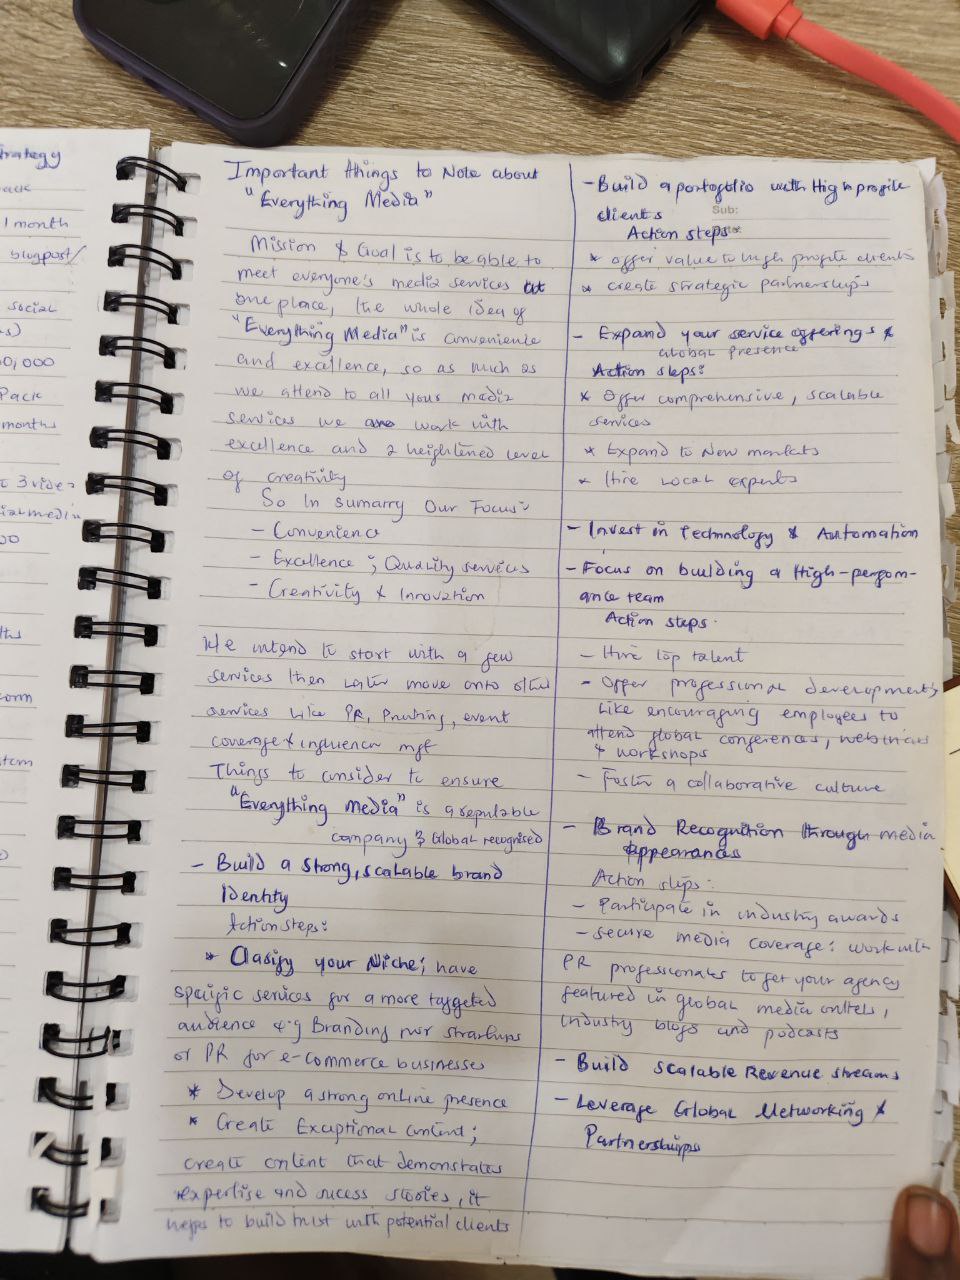 trategy
ack
1 month
blogpost/
social
s)
0,000
Pack
months
3 vide
ial media
00
ths
orm
tem
Important things to Note about
"Everything Media"
Mission & Goal is to be able to
meet everyone's media services at
one place, the whole idea of
"Everything Media" is convenience
and excellence, so as much as
we attend to all your media
services we work with
excellence and a heightened level
of creativity
So In sumarry Our Focus:
- Convenience
- Excellence ; Quality services
- Creativity & Innovation
We intend to start with a few
services then later move onto other
services like PR, Printing, event
coverage & influencer mgt
Things to consider to ensure
"Everything Media" is a reputable
company & Global recognised
- Build a strong, scalable brand
Identity
Action steps:
* Clasify your Niche; have
specific services for a more taggeted
audience e.g Branding for startups
or PR for e-commerce businesses
* Develop a strong online presence
* Create Exceptional content;
create content that demonstrates
expertise and sucess stories, it
helps to build trust with potential clients
- Build a portofolio with High profile
clients
Sub:
Action steps
* offer value to high profile clients
* create strategic partnerships
- Expand your service offerings &
Global presence
Action steps:
* Offer comprehensive, scalable
services
* Expand to New markets
* Hire Local experts
- Invest in Technology & Automation
- Focus on building a High-perform-
ance team
Action steps.
- Hire top talent
- Offer professional developments
like encouraging employees to
attend global conferences, webinars
& workshops
- Foster a collaborative culture
- Brand Recognition through media
Appearances
Action steps:
- Participate in industry awards
- secure media coverage: work with
PR professionals to get your agency
featured in global media outlets,
industry blogs and podcasts
- Build scalable Revenue streams
- Leverage Global Networking &
Partnerships